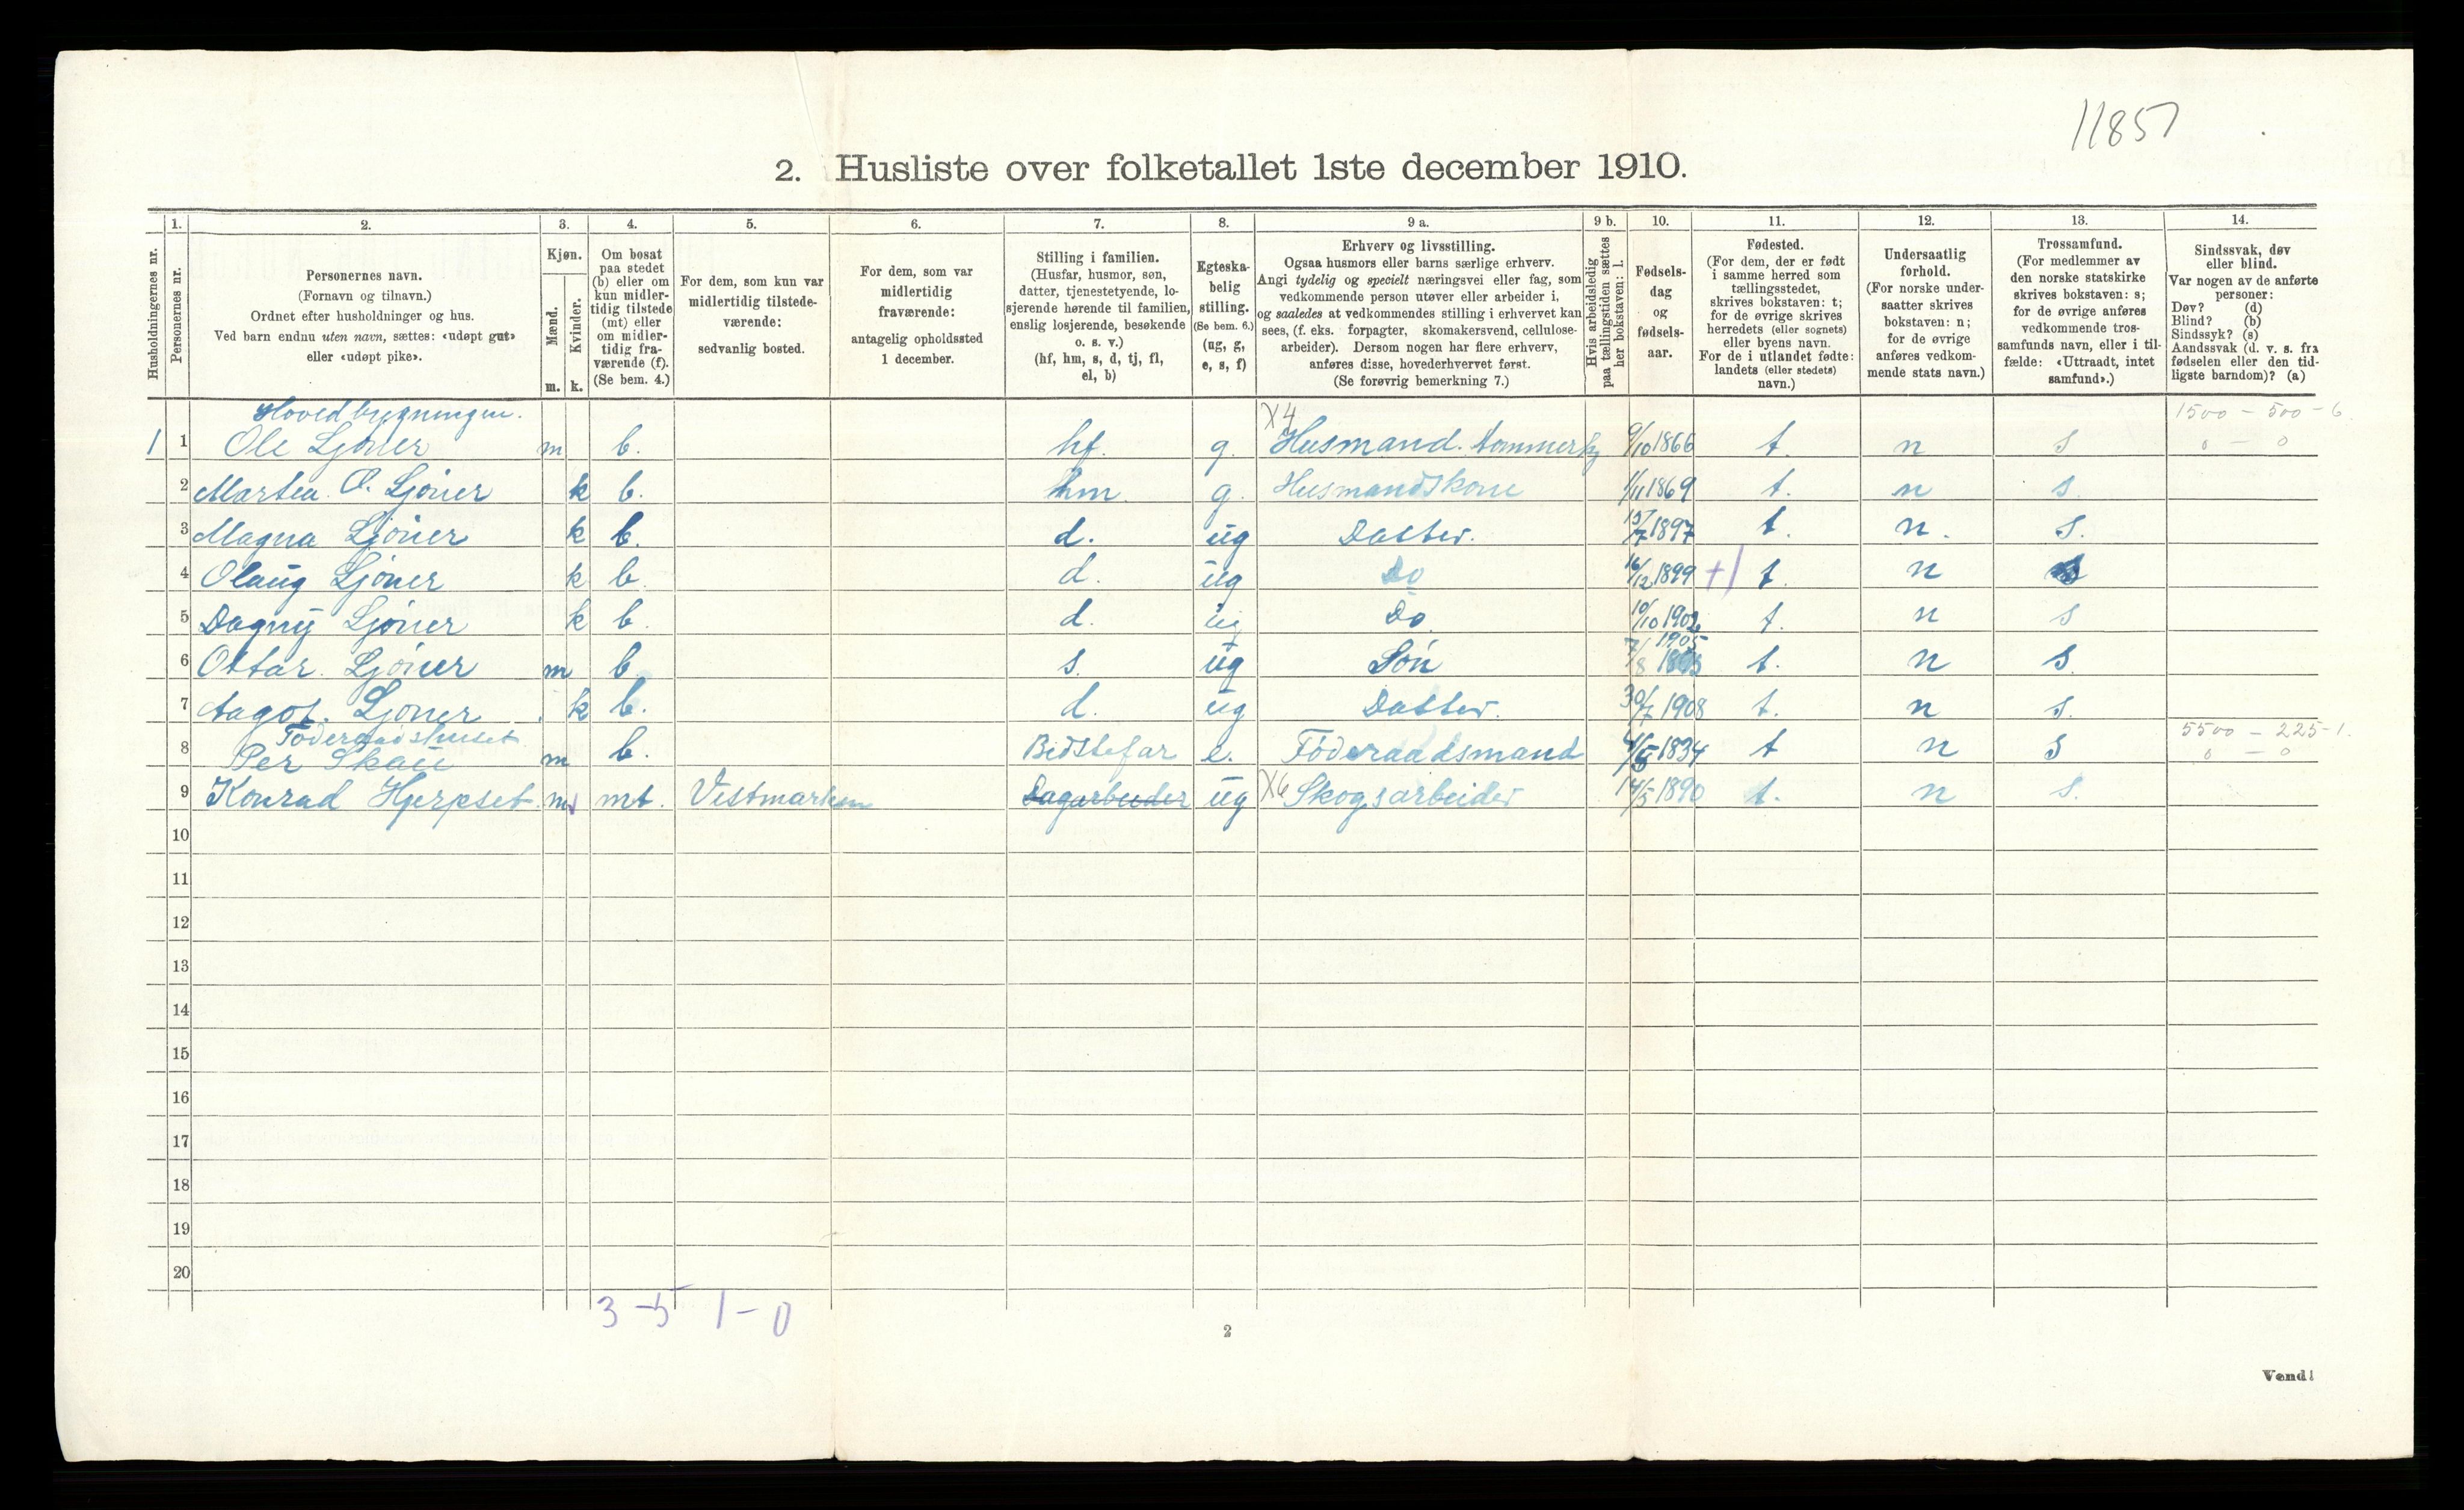 11857
2. Husliste over folketallet 1ste december 1910.
Husholdningernes nr.
1.
Personernes nr.
2.
Personernes navn.
(Fornavn og tilnavn.)
Ordnet efter husholdninger og hus.
Ved barn endnu uten navn, sættes: «udøpt gut»
eller «udøpt pike».
3.
Kjøn.
Mænd.
Kvinder.
m. k.
4.
Om bosat
paa stedet
(b) eller om
kun midler-
tidig tilstede
(mt) eller
om midler-
tidig fra-
værende (f).
(Se bem. 4.)
5.
For dem, som kun var
midlertidig tilstede-
værende:
sedvanlig bosted.
6.
For dem, som var
midlertidig
fraværende:
antagelig opholdssted
1 december.
7.
Stilling i familien.
(Husfar, husmor, søn,
datter, tjenestetyende, lo-
sjerende hørende til familien,
enslig losjerende, besøkende
o. s. v.)
(hf, hm, s, d, tj, fl,
el, b)
8.
Egteska-
belig
stilling.
(Se bem. 6.)
(ug, g,
e, s, f)
9 a.
Erhverv og livsstilling.
Ogsaa husmors eller barns særlige erhverv.
Angi tydelig og specielt næringsvei eller fag, som
vedkommende person utøver eller arbeider i,
og saaledes at vedkommendes stilling i erhvervet kan
sees, (f. eks. forpagter, skomakersvend, cellulose-
arbeider). Dersom nogen har flere erhverv,
anføres disse, hovederhvervet først.
(Se forøvrig bemerkning 7.)
9 b.
Hvis arbeidsledig
paa tællingstiden sættes
her bokstaven: l.
10.
Fødsels-
dag
og
fødsels-
aar.
11.
Fødested.
(For dem, der er født
i samme herred som
tællingsstedet,
skrives bokstaven: t;
for de øvrige skrives
herredets (eller sognets)
eller byens navn.
For de i utlandet fødte:
landets (eller stedets)
navn.)
12.
Undersaatlig
forhold.
(For norske under-
saatter skrives
bokstaven: n;
for de øvrige
anføres vedkom-
mende stats navn.)
13.
Trossamfund.
(For medlemmer av
den norske statskirke
skrives bokstaven: s;
for de øvrige anføres
vedkommende tros-
samfunds navn, eller i til-
fælde: «Uttraadt, intet
samfund».)
14.
Sindssvak, døv
eller blind.
Var nogen av de anførte
personer:
Døv? (d)
Blind? (b)
Sindssyk? (s)
Aandssvak (d. v. s. fra
fødselen eller den tid-
ligste barndom)? (a)
Hovedbygningen. X4 1500 - 500 - 6
1 1 Ole Ljøner m b. hf. g. Husmand. 9/10 1866 t. n s 0 - 0
2 Martea O. Ljøner k b. hm. g. Husmandskone 1/11 1869 t. n s.
3 Magna Ljøner k b. d. ug Datter. 15/7 1897 t. n. s.
4 Olaug Ljøner k b. d. ug Do 16/12 1899 +1 t. n s
5 Dagny Ljøner k b. d. ug Do. 10/10 1902 t. n s
6 Ottar. Ljøner m b s. ug Søn 7/8 1905 t. n s.
7 Aagot. Ljøner k b. d. ug Datter. 30/7 1908 t. n s.
Føderaadshuset 5500 - 225 - 1.
8 Per Skau m b. Bedstefar e. Føderaadsmand 4/5 1834 t n s 0 - 0
9 Konrad Hjerpset m mt. Vestmarken Dagarbeider ug X6 Skogsarbeider 14/5 1890 t. n s.
10
11
12
13
14
15
16
17
18
19
20
3 - 5 1 - 0
2
Vend!